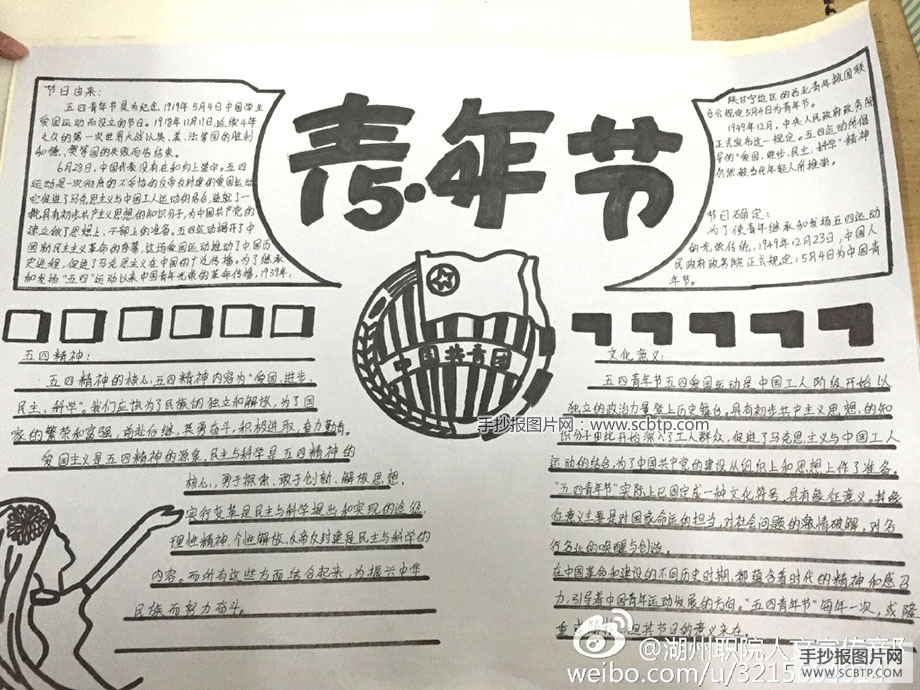 节日由来：
五四青年节是为纪念1919年5月4日中国学生
爱国运动而设立的节日。1918年11月11日，延续4年
之久的第一次世界大战以英、美、法等国的胜利
和德、奥等国的失败而告结束。
6月28日，中国代表没有在和约上签字。五四
运动是一次彻底的不妥协的反帝反封建的爱国运动
它促进了马克思主义与中国工人运动的结合，造就了一
批具有初步共产主义思想的知识分子，为中国共产党的
建立做了思想上，干部上的准备。五四运动揭开了中
国新民主主义革命的序幕，这场爱国运动推动了中国历
史进程，促进了马克思主义在中国的广泛传播。为了继承
和发扬"五四"运动以来中国青年光荣的革命传播，1939年，
青年节
5·4
陕甘宁边区的西北青年救国联
合会规定5月4日为青年节。
1949年12月，中央人民政府政务院
正式宣布这一规定。五四运动所倡
导的"爱国、进步、民主、科学"精神
仍然被当代年轻人所推崇。
节日确定：
为了使青年继承和发扬五四运动
的光荣传统，1949年12月23日，中国人
民政府政务院正式规定：5月4日为中国青
年节。
中国共青团
手抄报图片网
www.scbtp.com
五四精神：
五四精神的核心，五四精神内容为"爱国、进步、
民主、科学"。我们应该为了民族的独立和解放，为了国
家的繁荣和富强，前赴后继，英勇奋斗，积极进取，奋力勤奋。
爱国主义是五四精神的源泉，民主与科学是五四精神的
核心，勇于探索、敢于创新、解放思想、
实行变革是民主与科学提出和实现的途径，
理性精神、个性解放、反帝反封建是民主与科学的
内容。而所有这些方面，结合起来，为振兴中华
民族而努力奋斗。
文化意义：
五四青年节五四爱国运动是中国工人阶级开始以
独立的政治力量登上历史舞台。具有初步共产主义思想，的知
识分子由此开始深入了工人群众，促进了马克思主义与中国工人
运动的结合，为了中国共产党的建设从组织上和思想上作了准备。
"五四青年节"实际上已固定成一种文化符号，具有象征意义。其象
征意义主要是对国家命运的担当，对社会问题的激情破解，对各
行各业的唤醒与创造。
在中国革命和建设的不同历史时期，都蕴含着时代的精神和感召
力，引导着中国青年运动发展的方向。"五四青年节"每年一次，或隆
重 但其节日的意义永在。
@湖州职院人文宣传部
weibo.com/u/3215
手抄报图片网
WWW.SCBTP.COM